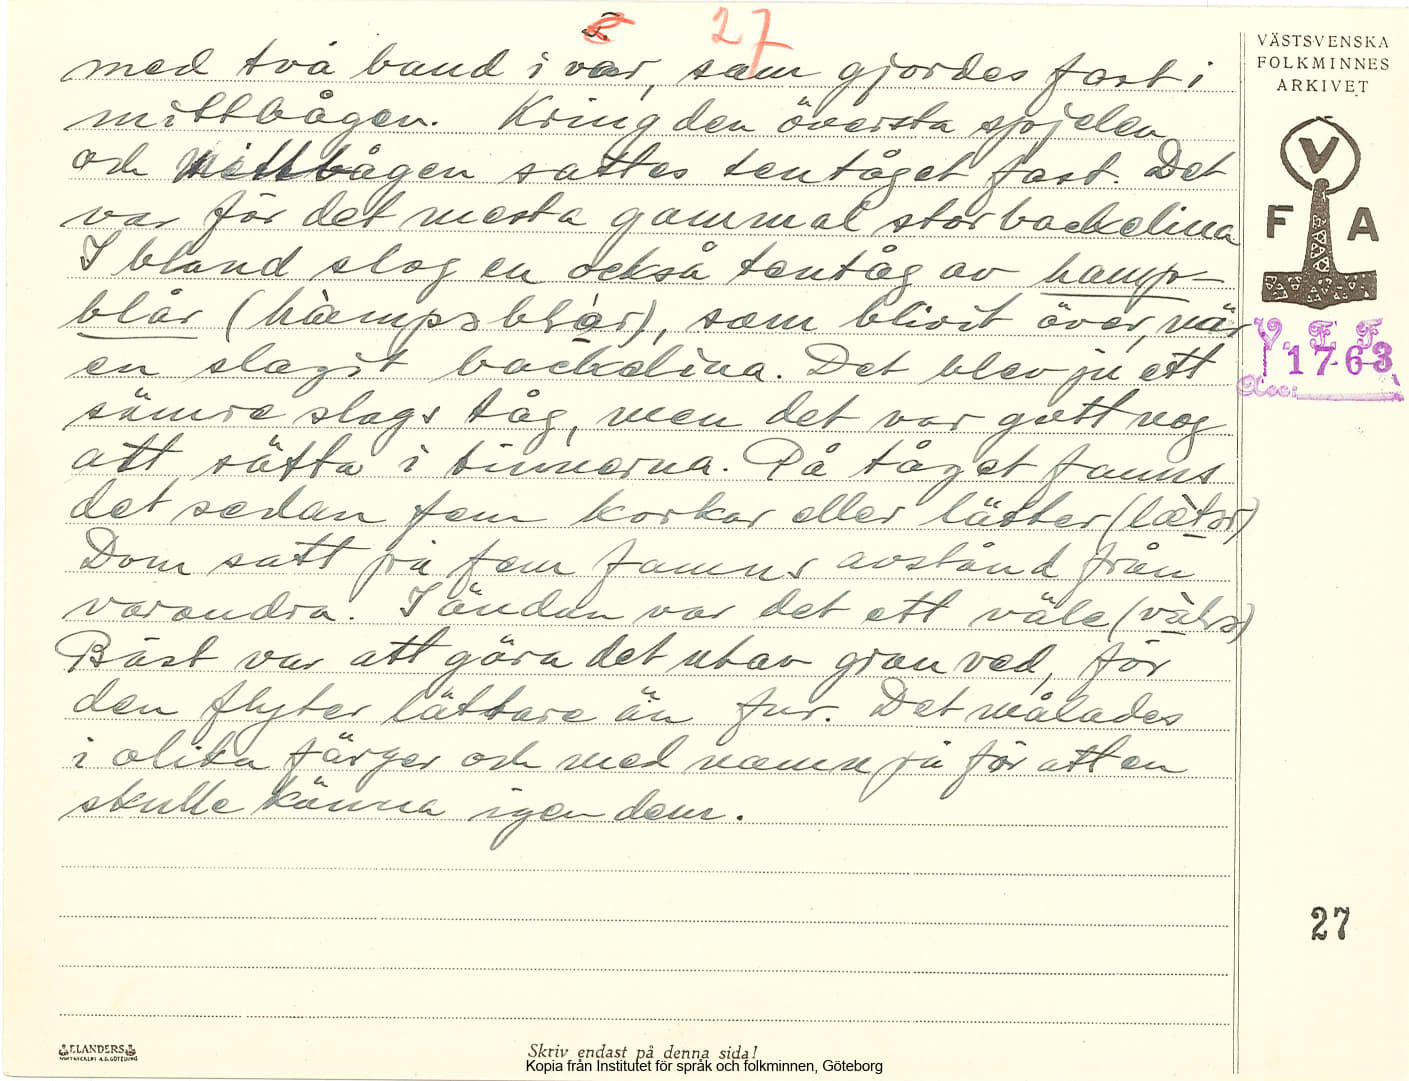 2. 27
med två band i var, som gjordes fast i
mittbågen. Kring den översta spjelen
och Mittbågen sattes tentåget fast. Det
var för det mesta gammal storbackelina
I bland slog en också tentåg av hamp-
blår (hàmpsblår), som blivit över, när
en slagit backelina. Det blev ju ett
sämre slags tåg, men det var gott nog
att sätta i tinnerna. På tåget fanns
det sedan fem korkar eller läster
Dom satt på fem famns avstånd från
varandra. I ändan var det ett väle
Bäst var att göra det utav gran ved, för
den flyter lättare än fur. Det målades
i olika färger och med namn på för att en
skulle känna igen dem.
VÄSTSVENSKA
FOLKMINNES
ARKIVET
V
F A
V. F. F.
1763
Acc:
27
ELANDERS
Skriv endast på denna sida!
Kopia från Institutet för språk och folkminnen, Göteborg